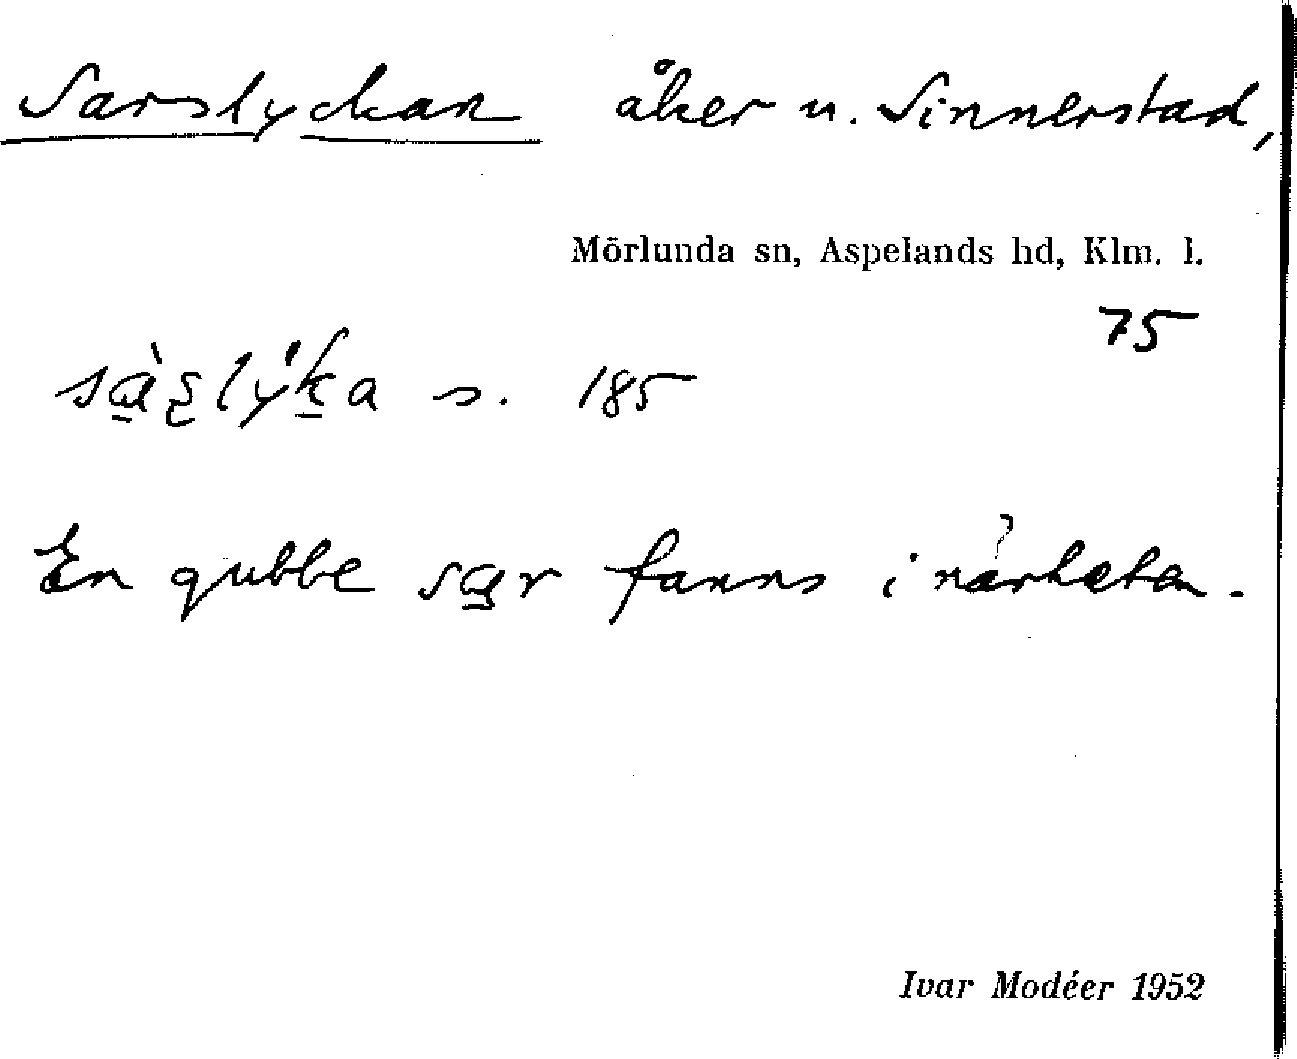 Sarslyckan åker u. Sinnerstad,
Mörlunda sn, Aspelands hd, Klm. l.
75
s. 185
En gubbe sar fanns i närheten.
Ivar Modéer 1952